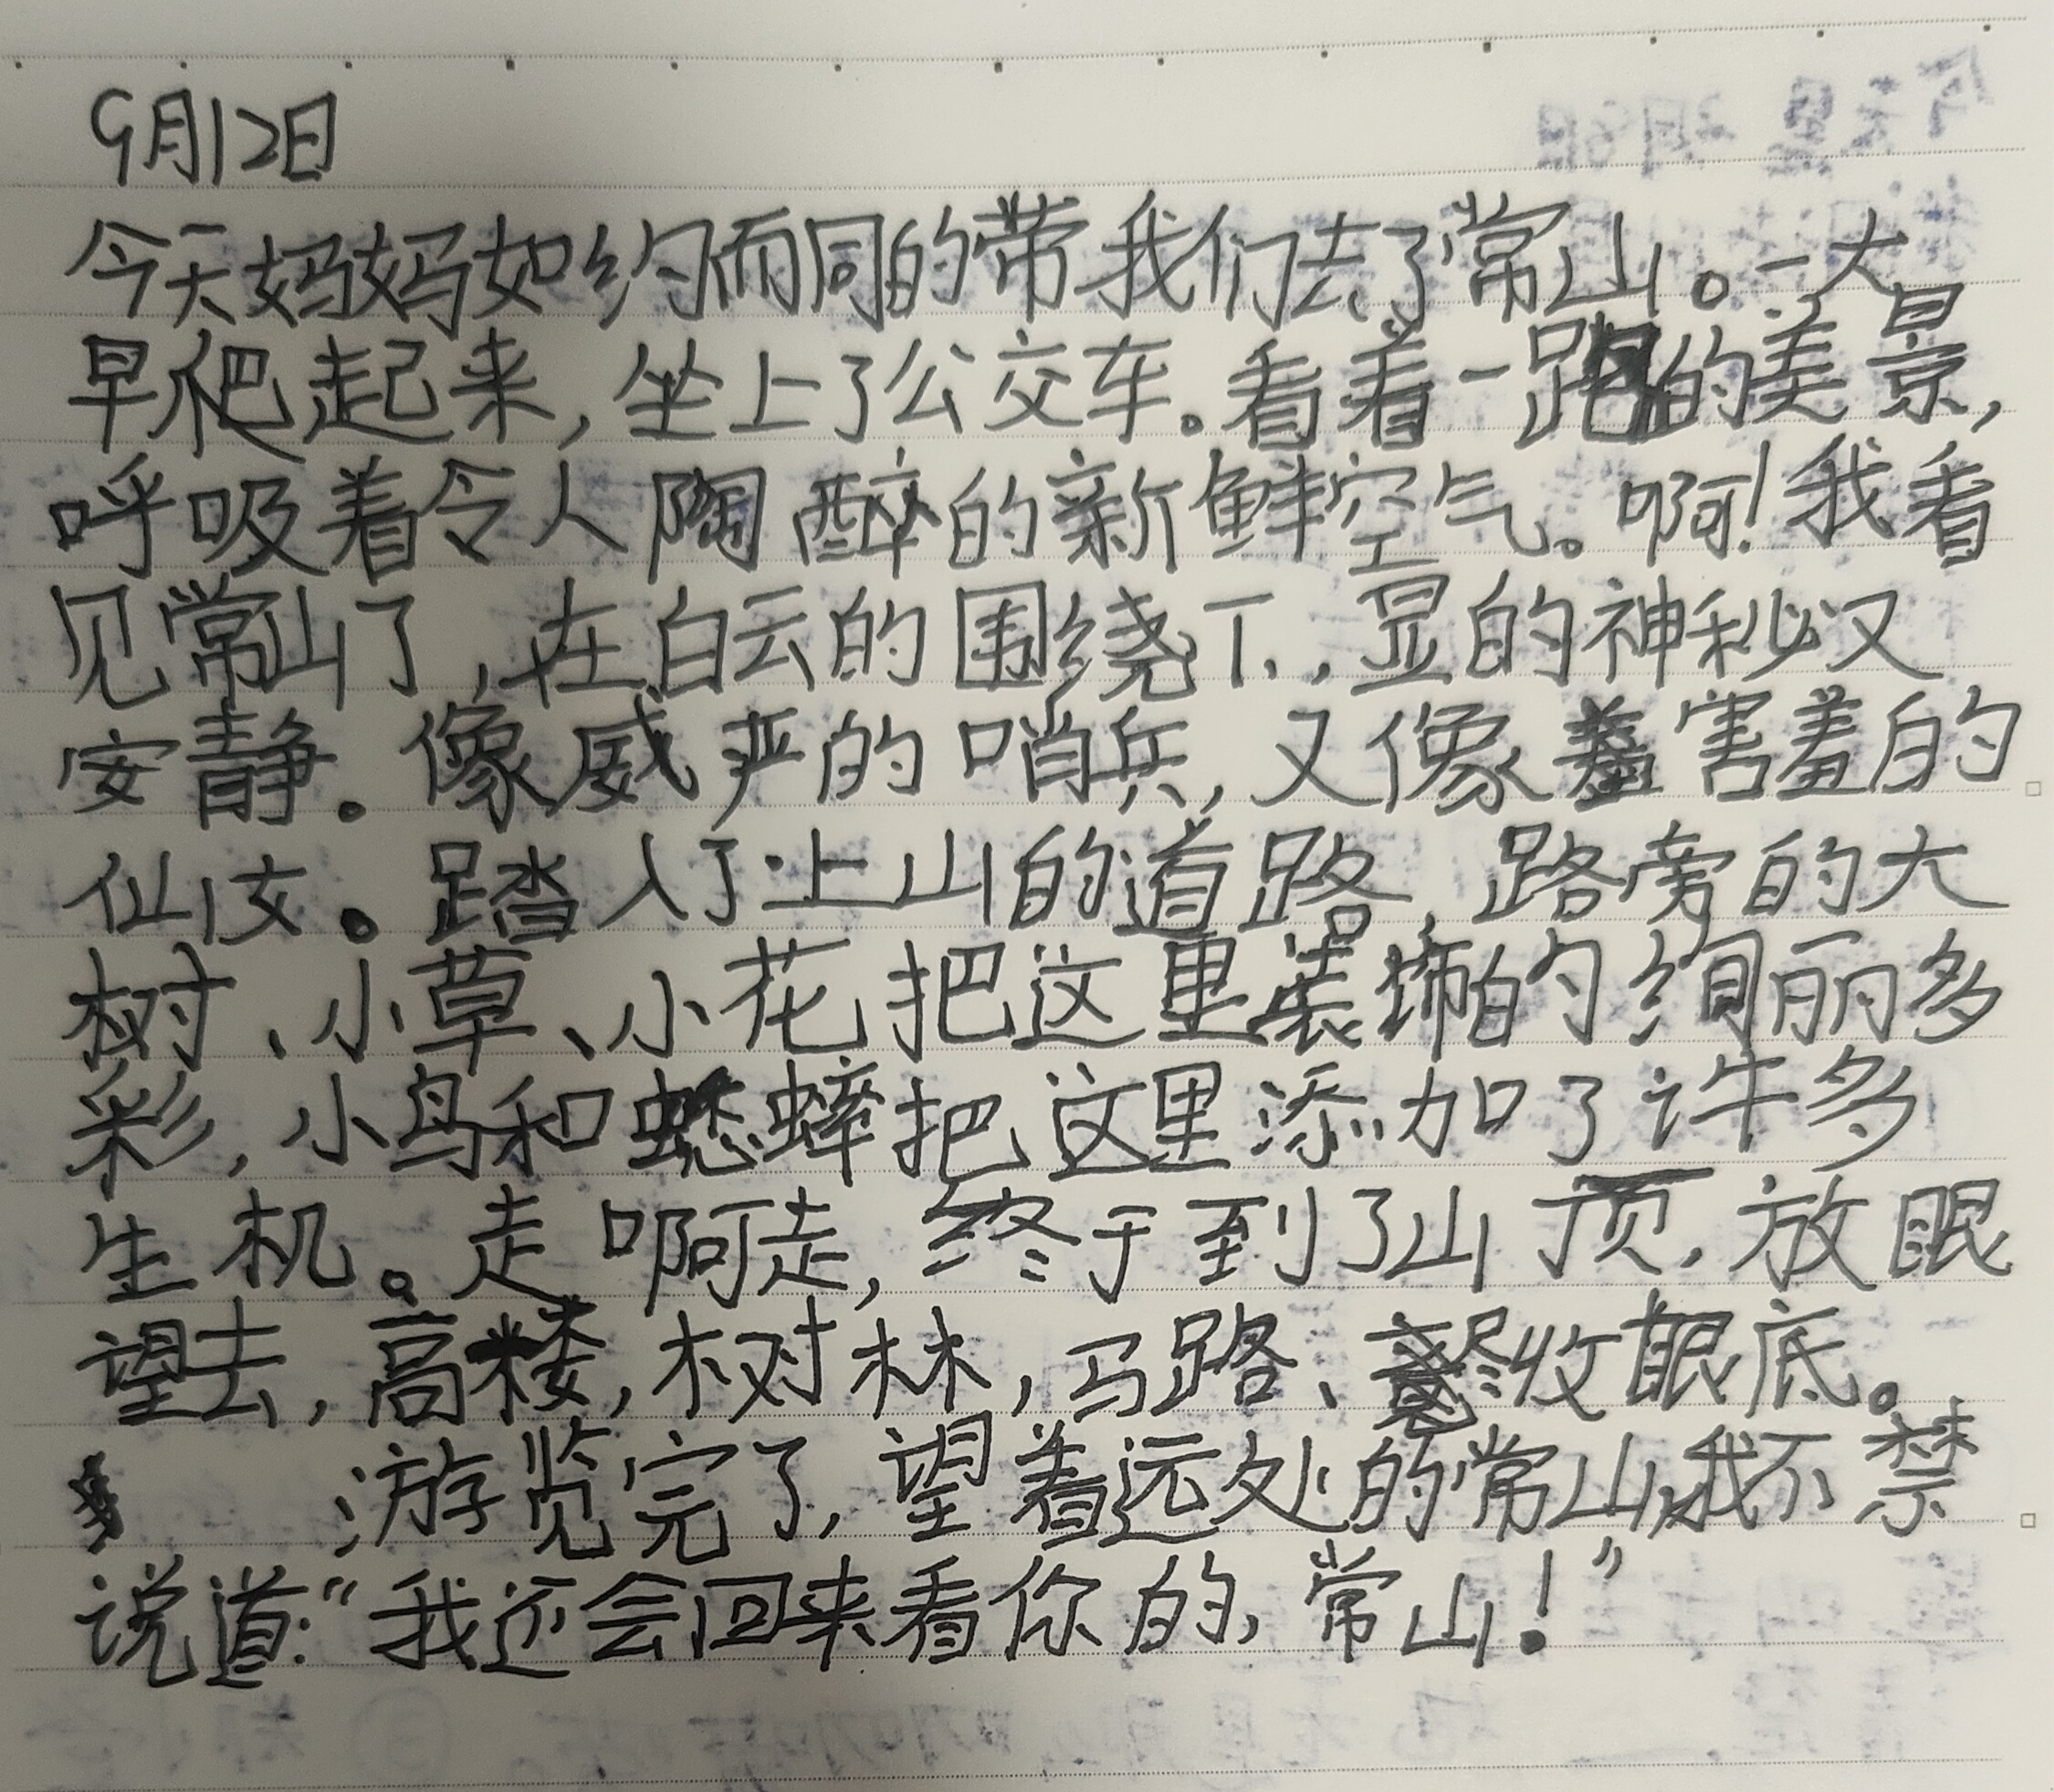 9月12日
今天妈妈如约而同的带我们去了常山。一大
早爬起来,坐上了公交车。看着一路的美景,
呼吸着令人陶醉的新鲜空气。啊!我看
见常山了,在白云的围绕下,显的神秘又
安静。像威严的哨兵,又像害羞的
仙女。踏入了上山的道路,路旁的大
树、小草、小花把这里装饰的绚丽多
彩,小鸟和蟋蟀把这里添加了许多
生机。走啊走,终于到了山顶,放眼
望去,高楼,树林,马路、尽收眼底。
游览完了,望着远处的常山,我不禁
说道:“我还会回来看你的,常山!”